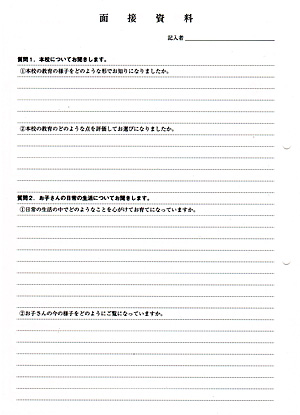 面接資料
記入者
質問1．本校についてお聞きします。
①本校の教育の様子をどのような形でお知りになりましたか。
②本校の教育のどのような点を評価してお選びになりましたか。
質問2．お子さんの日常の生活についてお聞きします。
①日常の生活の中でどのようなことを心がけてお育てになっていますか。
②お子さんの今の様子をどのようにご覧になっていますか。